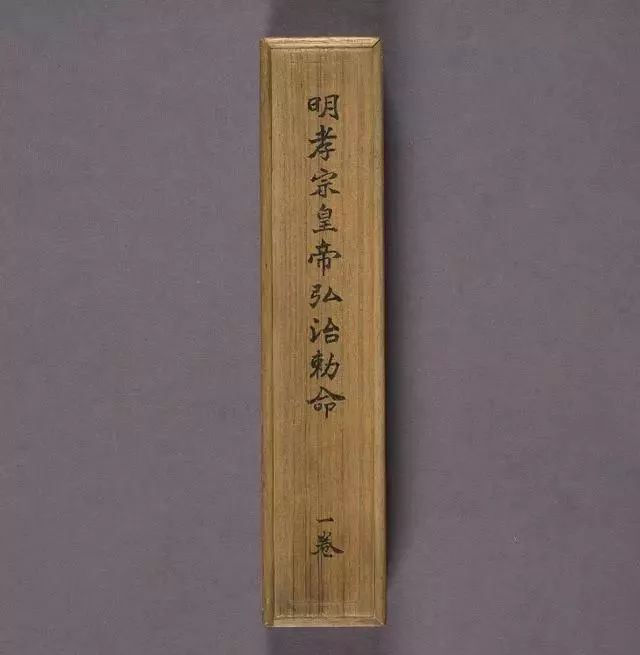 明孝宗皇帝弘治勅命
一卷